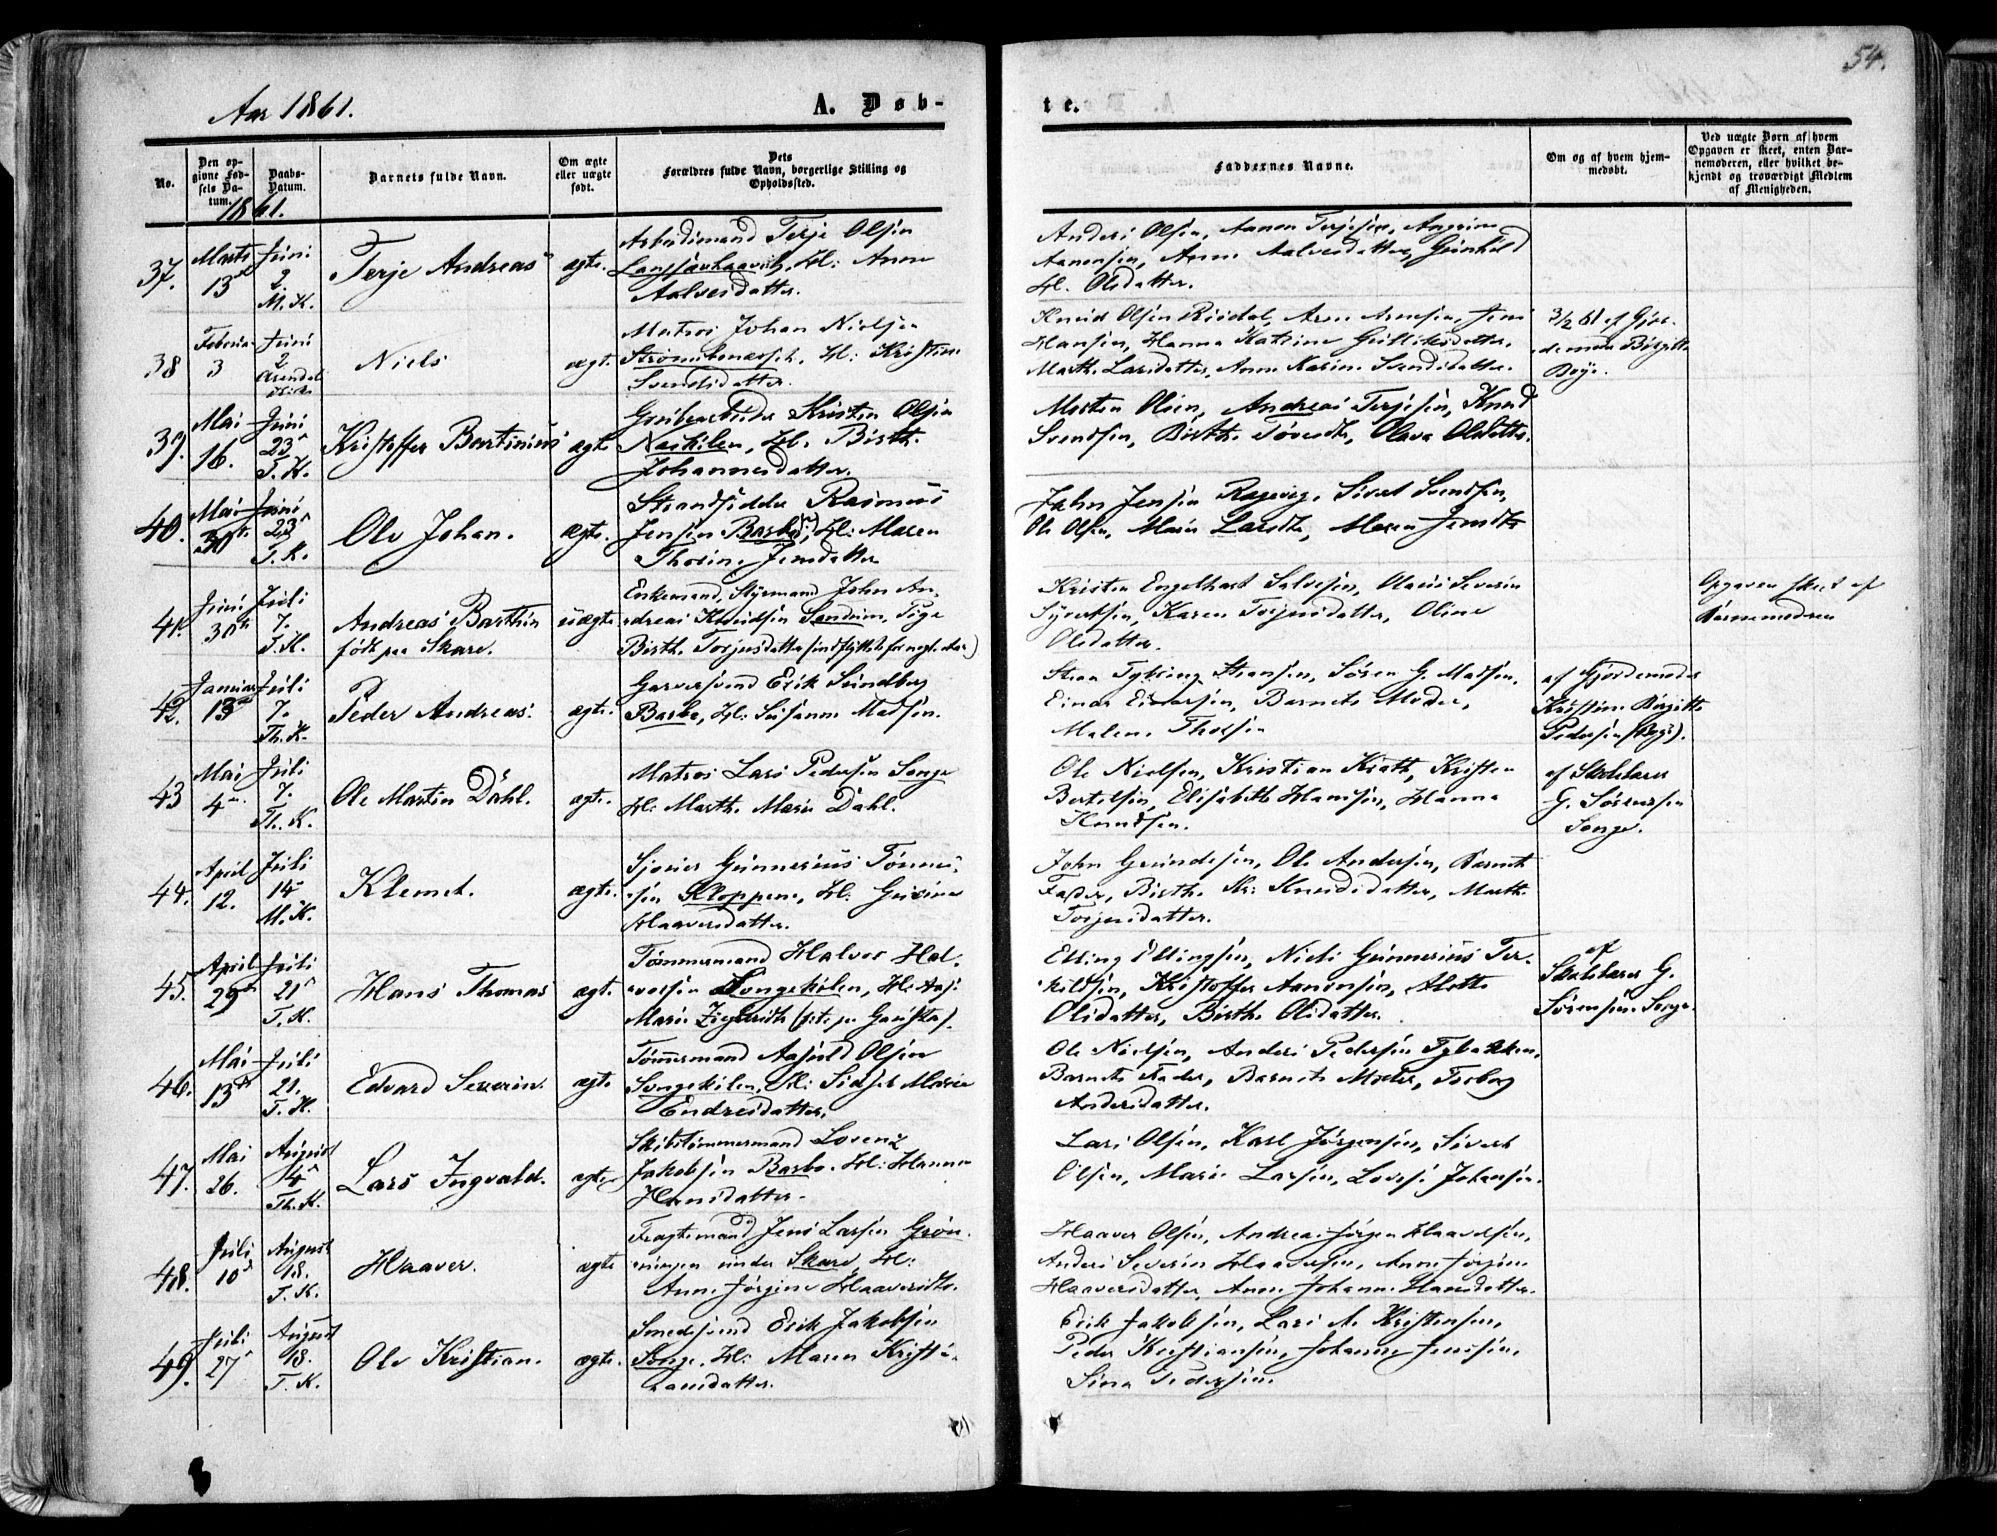 54.
Aar 1861.
A. Døb-
te.
No.
Den opgivne Fødsels Datum.
Daabs-Datum.
Barnets fulde Navn.
Om ægte eller uægte født.
Dets Forældres fulde Navn, borgerlige Stilling og Opholdssted.
Faddernes Navne.
Om og af hvem hjemmedøbt.
Ved uægte Børn af hvem Opgaven er skeet, enten Barnemoderen, eller hvilket bekjendt og troværdigt Medlem af Menigheden.
1861.
37. Marts 13de Juni 2. M. K. Terje Andreas ægte. Arbeidsmand Terje Olsen
H: Anne
Aalvesdatter.
Anders Olsen, Aanon Terjesen,
Aanensen, Anne Aalvesdatter, Gunhild
Olsdatter.
38 Februar 3 Juni 2 Arendals Kirke Niels ægte. Matros Johan Nielsen
H: Kristine
Svendsdatter.
Knud Olsen Arne Arnesen, Jens
Hansen, Hanna Katrine
Marthe Larsdatter, Anne Karine Svendsdatter.
3/2 61 af Gjor-
demoder Birgitte
Boye.
39. Mai 16. Juni 23 T. K. Kristoffer Bertinius ægte Grubearbeider Kristen Olsen
Naskilen, H: Birthe
Johannesdatter.
Morten Olsen, Andreas Terjesen, Knud
Svendsen, Birthe Olava Olsdatter.
40. Mai 30te Juni 23 T. K. Ole Johan. ægte. Strandsidder Rasmus
Jensen Barbo, H: Maren
Thorine Jensdatter
John Jensen Ragevig, Sivert Svendsen,
Ole Olsen, Maren Larsdtr, Maren Jensdtr
41. Juni 30te Juli 7. T. K. Andreas Barthin
født paa Skare. uægte Enkemand, Styrmand John An-
dreas Knudsen Sandum, Pige
Birthe Torjusdatter
Kristen Engelhart Salvesen, Olaus Severin
Syvertsen, Karen Torjusdatter, Oline
Olsdatter.
Opgaven skeet af
Barnemoderen
42. Januar 13de Juli 7. Th. K. Peder Andreas. ægte. Garversvend Erik Sundberg
Barbo, H: Susanne Madsen.
Hansen, Søren G. Madsen,
Einar Barnets Moder,
Malene
af Gjordemoder
Kristine Birgitte
Pedersen (Boye).
43 Mai 4de Juli 7. Th. K. Ole Martin Dahl. ægte. Matros Lars Pedersen Songe
H: Marthe Marie Dahl.
Ole Nielsen, Kristian Kratt, Kristen
Bertelsen, Elisabeth Hansen, Hanna
Knudsen.
af Skolelærer
G. Sørensen
Songe.
44. April 12. Juli 14 M. K. Klemet. ægte. Gunnerius Tønnes-
sen Kloppene, H:
Haaversdatter.
John Gundersen, Ole Andersen, Barnets
Fader, Birthe Kr: Knudsdatter, Marthe
Torjusdatter.
45. April 29de Juli 21 T. K. Hans Thomas ægte. Tømmermand Halvor Hal-
vorsen Songekilen, H:
Marie
Elling Ellingsen, Niels Gunnerius Ter-
kildsen, Kristoffer Aanonsen,
Olsdatter, Birthe Olsdatter.
af
Skolelærer G.
Sørensen Songe.
46. Mai 13de Juli 21. T. K. Edvard Severin. ægte Tømmermand Olsen
Songekilen, H: Marie
Endresdatter.
Ole Nielsen, Anders Pedersen Tybakken,
Barnets Fader, Barnets Moder, Torborg
Andersdatter.
47. Mai 26. August 4 Th. K. Lars Ingvald. ægte Skibstømmermand Lorenz
Jakobsen Barbo. H: Hanna
Hansdatter.
Lars Olsen, Karl Jørgensen, Sivert
Olsen, Marie Larsen, Lovise Johansen.
48. Juli 10de August 18. T. K. Haaver. ægte Fragtemand Jens Larsen Grøn-
ningen under Skare, H:
Anne Jørgine Haaversdtr.
Haaver Olsen, Andreas Jørgen Haaversen,
Anders Severin Haaversen, Anne Jørgine
Haaversdatter, Anne Johanne Hansdatter.
49. Juli 27 August 18. T. K. Ole Kristian. ægte. Smedsvend Erik Jakobsen
Songe. H: Maren Kristi-
ansdatter.
Erik Jakobsen, Lars M. Kristensen,
Peder Kristiansen, Johanne Jensen,
Sina Pedersen.